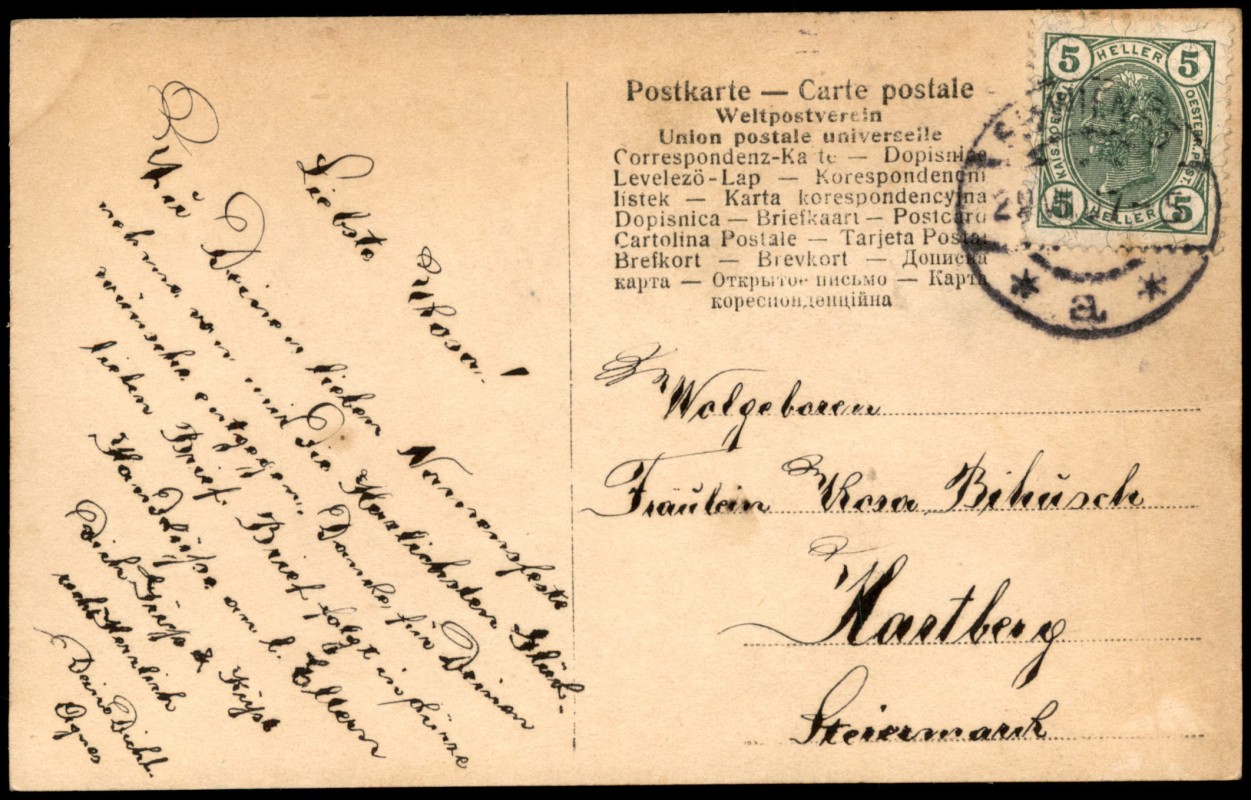 Liebste Rosa!
Zu Deinem lieben Namensfeste
nehme von mir die Herzlichsten Glück-
wünsche entgegen. Danke für Deinen
lieben Brief. Brief folgt in Kürze
Handküsse an l. Eltern
Dich Grüsst & Küsst
recht Herzlich
Deine Dicht.
Agnes
Postkarte — Carte postale
Weltpostverein
Union postale universelle
Correspondenz-Karte — Dopisnice
Levelező-Lap — Korespondencni
listek — Karta korespondencyjna
Dopisnica — Briefkaart — Postcard
Cartolina Postale — Tarjeta Postal
Brefkort — Brevkort — Дописна
карта — Открытое письмо — Карта
кореспонденційна
5 HELLER 5
KAIS. KOENIGL. OESTERR. POST
5 HELLER 5
a
Wolgeboren
Fräulein Rosa Bihusch
Hartberg
Steiermark